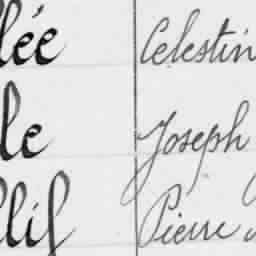 lée Célestin
le Joseph
llif Pierre